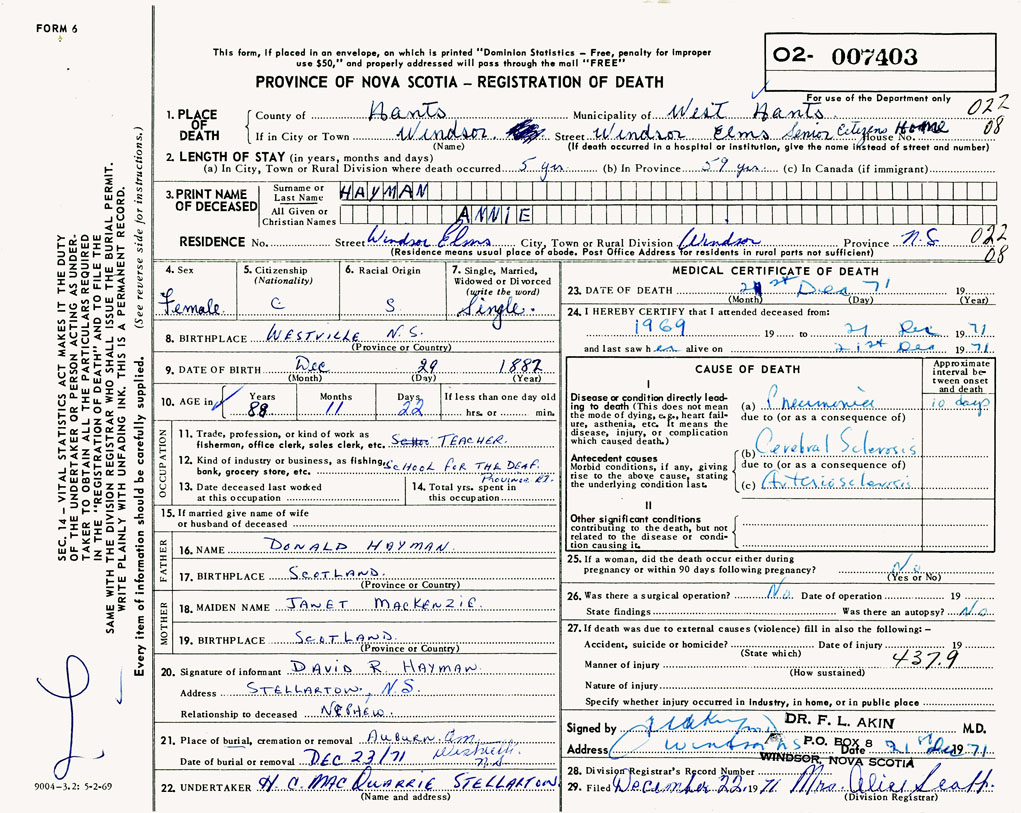 FORM 6
This form, if placed in an envelope, on which is printed "Dominion Statistics – Free, penalty for improper
use $50," and properly addressed will pass through the mail "FREE"
PROVINCE OF NOVA SCOTIA – REGISTRATION OF DEATH
02- 007403
For use of the Department only
022
08
1. PLACE OF DEATH
County of Hants Municipality of West Hants
If in City or Town Windsor Street Windsor Elms Senior Citizens Home House No.
(Name) (If death occurred in a hospital or institution, give the name instead of street and number)
2. LENGTH OF STAY (in years, months and days)
(a) In City, Town or Rural Division where death occurred 5 yrs. (b) In Province 59 yrs. (c) In Canada (if immigrant)
3. PRINT NAME OF DECEASED
Surname or Last Name HAYMAN
All Given or Christian Names ANNIE
RESIDENCE No. Street Windsor Elms City, Town or Rural Division Windsor Province N.S. 022
(Residence means usual place of abode. Post Office Address for residents in rural parts not sufficient) 08
4. Sex
Female
5. Citizenship
(Nationality)
C
6. Racial Origin
S
7. Single, Married,
Widowed or Divorced
(write the word)
Single.
8. BIRTHPLACE WESTVILLE N.S.
(Province or Country)
9. DATE OF BIRTH Dec 29 1882
(Month) (Day) (Year)
10. AGE in Years Months Days If less than one day old
88 11 22 hrs. or min.
OCCUPATION
11. Trade, profession, or kind of work as
fisherman, office clerk, sales clerk, etc. TEACHER.
12. Kind of industry or business, as fishing,
bank, grocery store, etc. SCHOOL FOR THE DEAF.
13. Date deceased last worked
at this occupation
14. Total yrs. spent in
this occupation
15. If married give name of wife
or husband of deceased
FATHER
16. NAME DONALD HAYMAN.
17. BIRTHPLACE SCOTLAND.
(Province or Country)
MOTHER
18. MAIDEN NAME JANET MACKENZIE.
19. BIRTHPLACE SCOTLAND.
(Province or Country)
20. Signature of informant DAVID R. HAYMAN.
Address STELLARTON, N.S.
Relationship to deceased NEPHEW.
21. Place of burial, cremation or removal AUBURN
Date of burial or removal DEC 23/71
22. UNDERTAKER H. C. MACQUARRIE STELLARTON.
(Name and address)
MEDICAL CERTIFICATE OF DEATH
23. DATE OF DEATH 21st Dec 71
(Month) (Day) (Year)
24. I HEREBY CERTIFY that I attended deceased from:
1969 19 to 21 Dec 1971
and last saw her alive on 21st Dec 1971
CAUSE OF DEATH
Approximate
interval be-
tween onset
and death
I
Disease or condition directly lead-
ing to death (This does not mean
the mode of dying, e.g., heart fail-
ure, asthenia, etc. It means the
disease, injury, or complication
which caused death.)
(a) Pneumonia 10 days
due to (or as a consequence of)
Antecedent causes
Morbid conditions, if any, giving
rise to the above cause, stating
the underlying condition last.
(b) Cerebral Sclerosis
due to (or as a consequence of)
(c) Arteriosclerosis
II
Other significant conditions
contributing to the death, but not
related to the disease or condi-
tion causing it.
25. If a woman, did the death occur either during
pregnancy or within 90 days following pregnancy? No
(Yes or No)
26. Was there a surgical operation? No. Date of operation 19
State findings Was there an autopsy? No
27. If death was due to external causes (violence) fill in also the following: –
Accident, suicide or homicide? Date of injury 19
(State which) 437.9
Manner of injury
(How sustained)
Nature of injury
Specify whether injury occurred in Industry, in home, or in public place
Signed by DR. F. L. AKIN M.D.
Address Windsor NS P.O. BOX 8 Date 21st Dec 1971
WINDSOR, NOVA SCOTIA
28. Division Registrar's Record Number
29. Filed December 22, 1971 Mrs.
(Division Registrar)
SEC. 14 – VITAL STATISTICS ACT MAKES IT THE DUTY
OF THE UNDERTAKER OR PERSON ACTING AS UNDER-
TAKER TO OBTAIN ALL THE PARTICULARS REQUIRED
IN THE "REGISTRATION OF DEATH" AND TO FILE THE
SAME WITH THE DIVISION REGISTRAR WHO SHALL ISSUE THE BURIAL PERMIT.
WRITE PLAINLY WITH UNFADING INK. THIS IS A PERMANENT RECORD.
Every item of information should be carefully supplied. (See reverse side for instructions.)
9004-3.2: 5-2-69